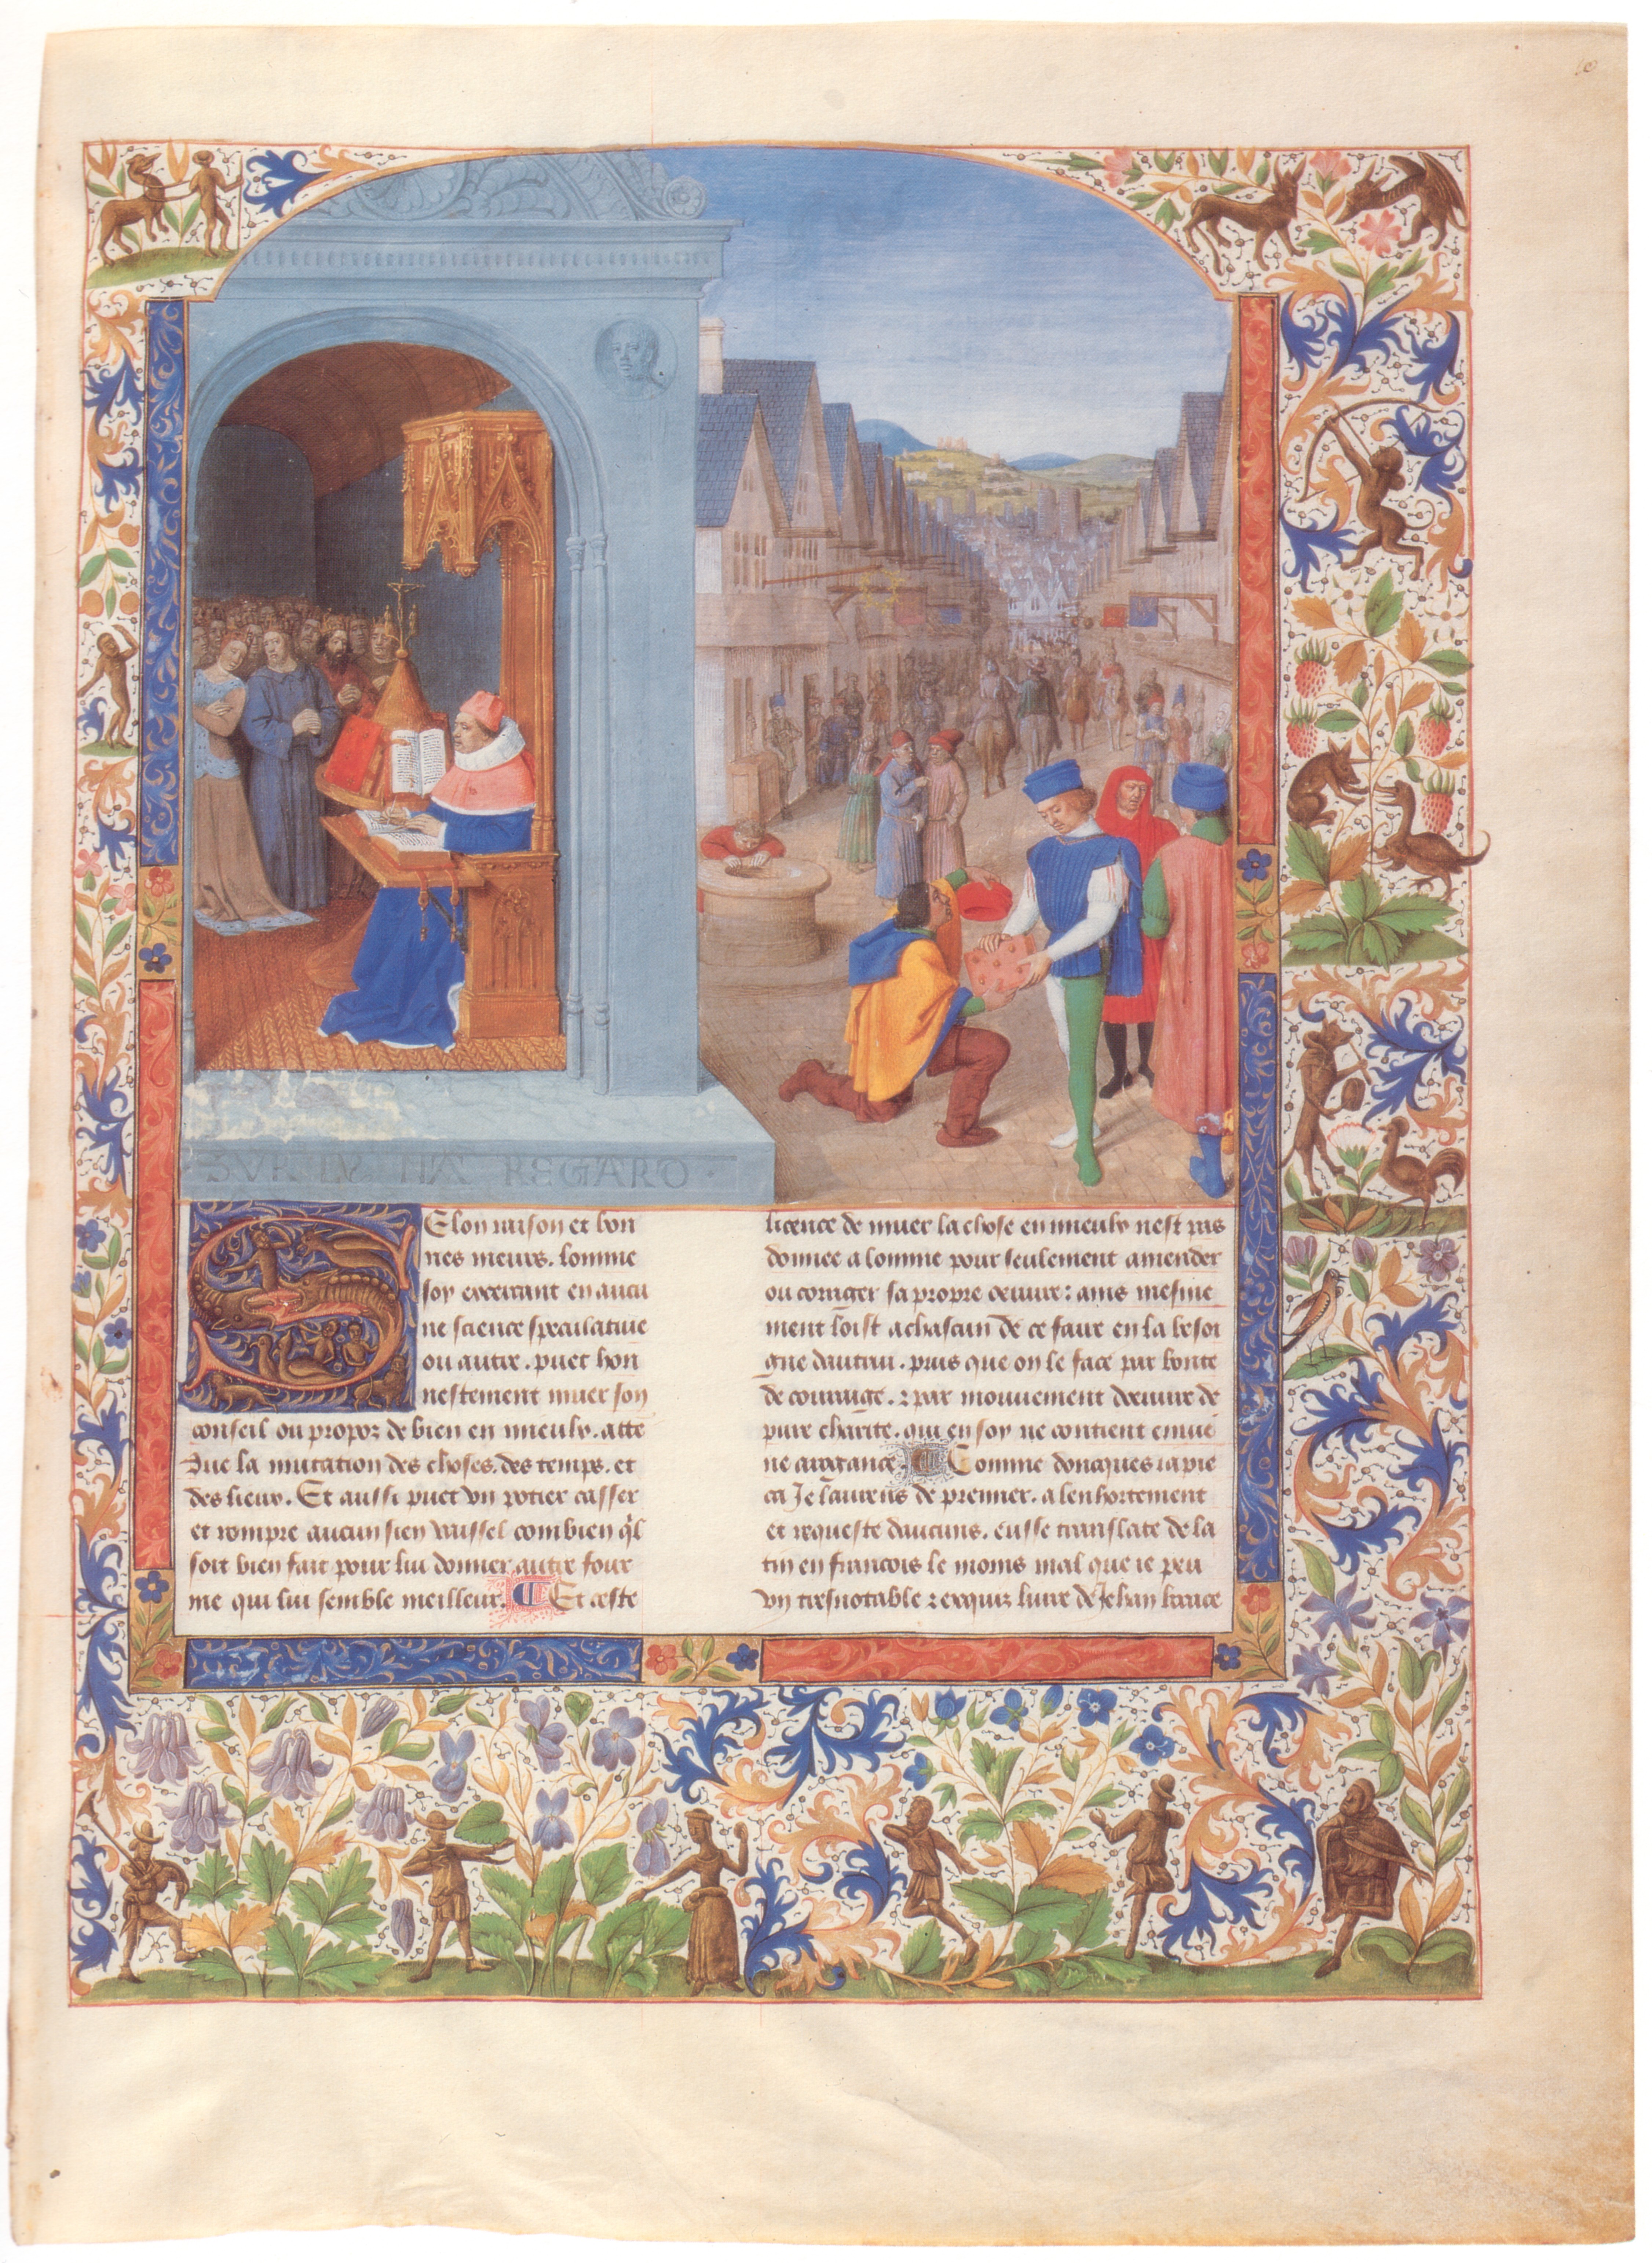 SVR LY NA REGARD
Selon raison et bon
nes meurs. lomme
soy excercant en aucu
ne science speculatiue
ou autre. puet hon
nestement muer son
conseil ou propoz de bien en mieulx. atte
due la mutacion des choses. des temps. et
des lieux. Et aussi puet vn potier casser
et rompre aucun sien vaissel combien q'l
soit bien fait pour lui donner autre four
me qui lui semble meilleur. Et ceste
licence de muer la chose en mieulx nest pas
donnee a lomme pour seulement amender
ou corriger sa propre oeuure: ains mesme
ment loist a chascun de ce faire en la besoi
gne dautrui. puis que on le face par bonte
de couraige. et par mouuement dœuure de
pure charite. qui en soy ne contient enuie
ne arrogance. Comme doncques ia pie
ca Je laurens de premier. a lenhortement
et requeste daucuns. eusse translate de la
tin en francois le moins mal que ie peu
vn tresnotable et exquiz liure de Jehan boace